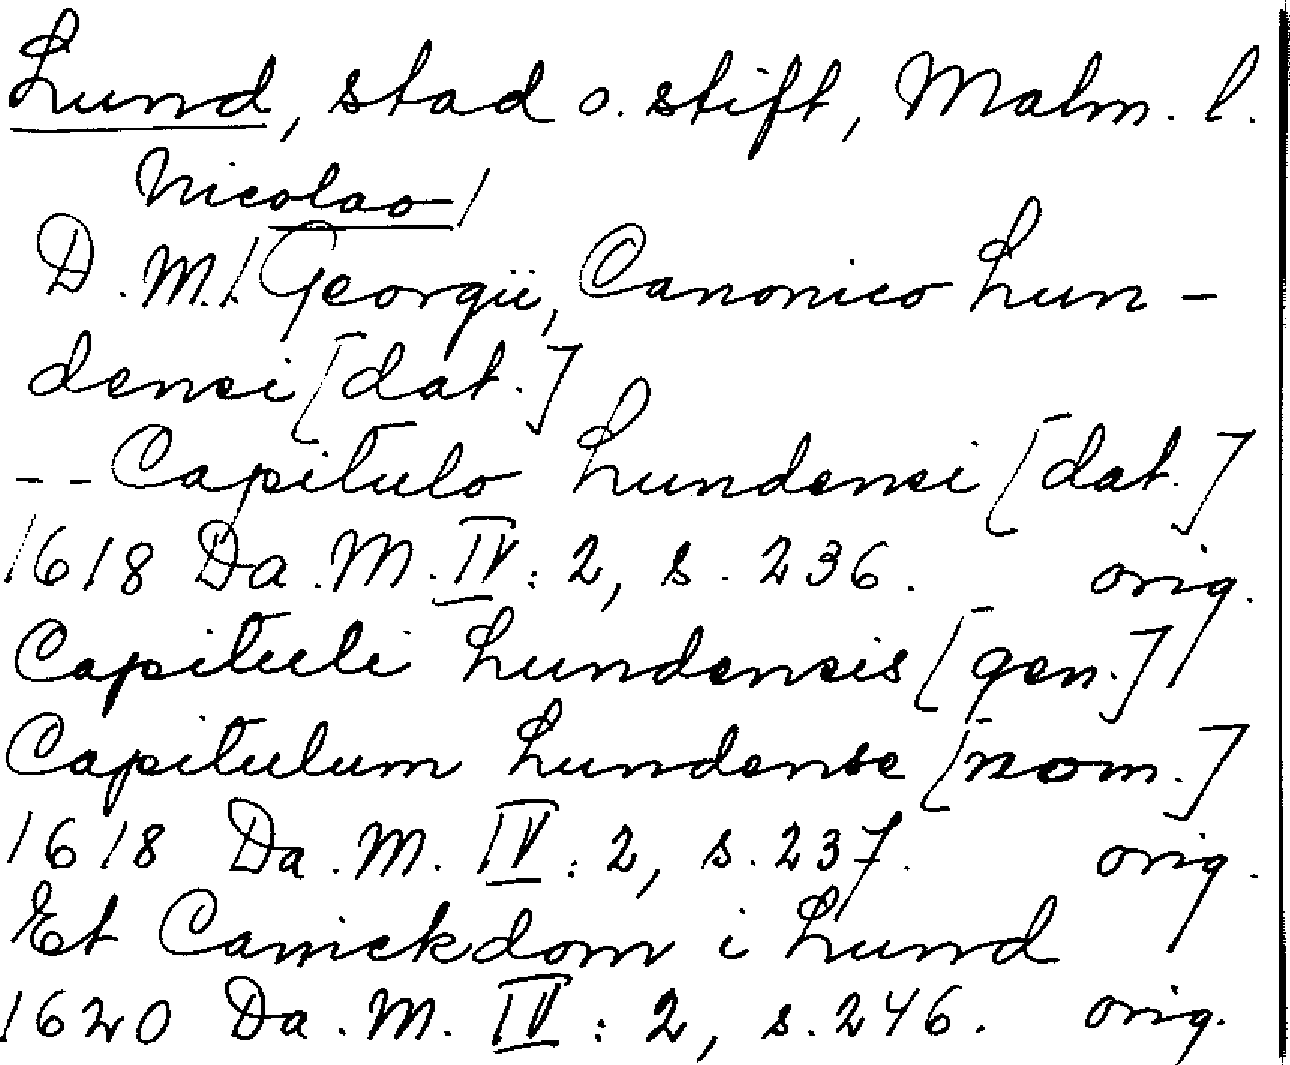 Lund, stad o. stift, Malm. l.
Nicolao/
D. M./. Georgii, Canonico Lun-
densi [dat.]
-- Capitulo Lundensi [dat.]
1618 Da. M. IV: 2, s. 236. orig.
Capituli Lundensis [gen.] /
Capitulum Lundense [nom.]
1618 Da. M. IV: 2, s. 237. orig.
Et Canickdom i Lund
1620 Da. M. IV: 2, s. 246. orig.